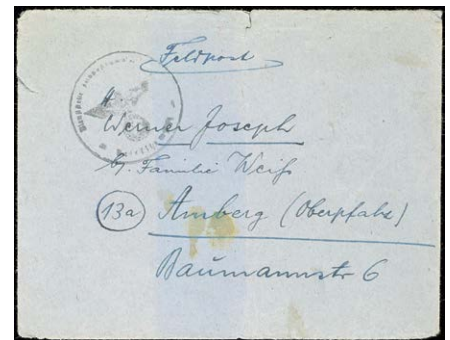 Feldpost
Werner Joseph
b/ Familie Weiß
(13a) Amberg (Oberpfalz)
Baumannstr 6